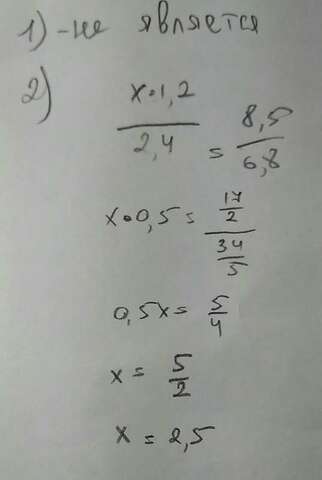 1) - не является
2) x•1,2 / 2,4 = 8,5 / 6,8
x•0,5 = 17/2 / 34/5
0,5x = 5/4
x = 5/2
x = 2,5